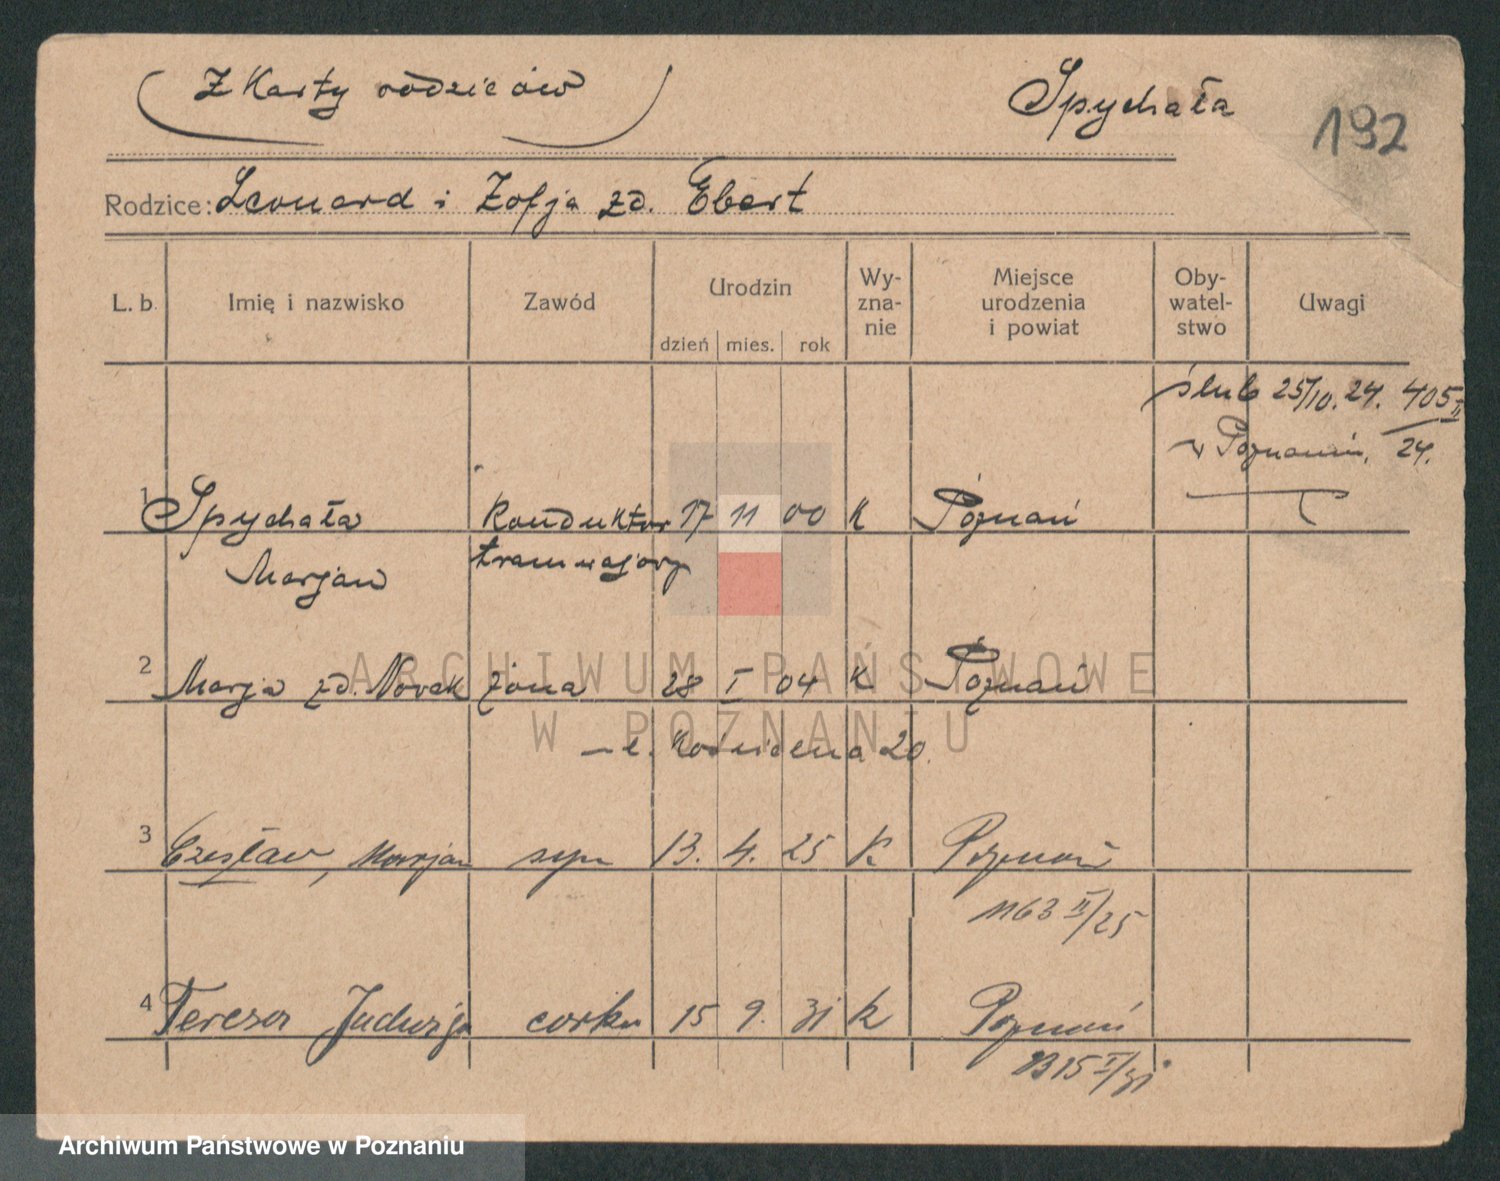 Z Karty rodziców
Spychała
192
Rodzice: Leonard i Zofja zd. Ebert
L. b.
Imię i nazwisko
Zawód
Urodzin
dzień mies. rok
Wy-
zna-
nie
Miejsce
urodzenia
i powiat
Oby-
watel-
stwo
Uwagi
ślub 25/10. 24. 405 II
w Poznaniu, 24.
1 Spychała konduktor 17 11 00 K Poznań
Marjan tramwajowy
2 Marja zd. Nowak żona 28 I 04 K Poznań
20.
3 Czesław, Marjan syn 13. 4. 25 K Poznań
1163 II/25
4 Teresa Jadwiga córka 15 9. 31 K Poznań
I/31
ARCHIWUM PAŃSTWOWE
W POZNANIU
Archiwum Państwowe w Poznaniu